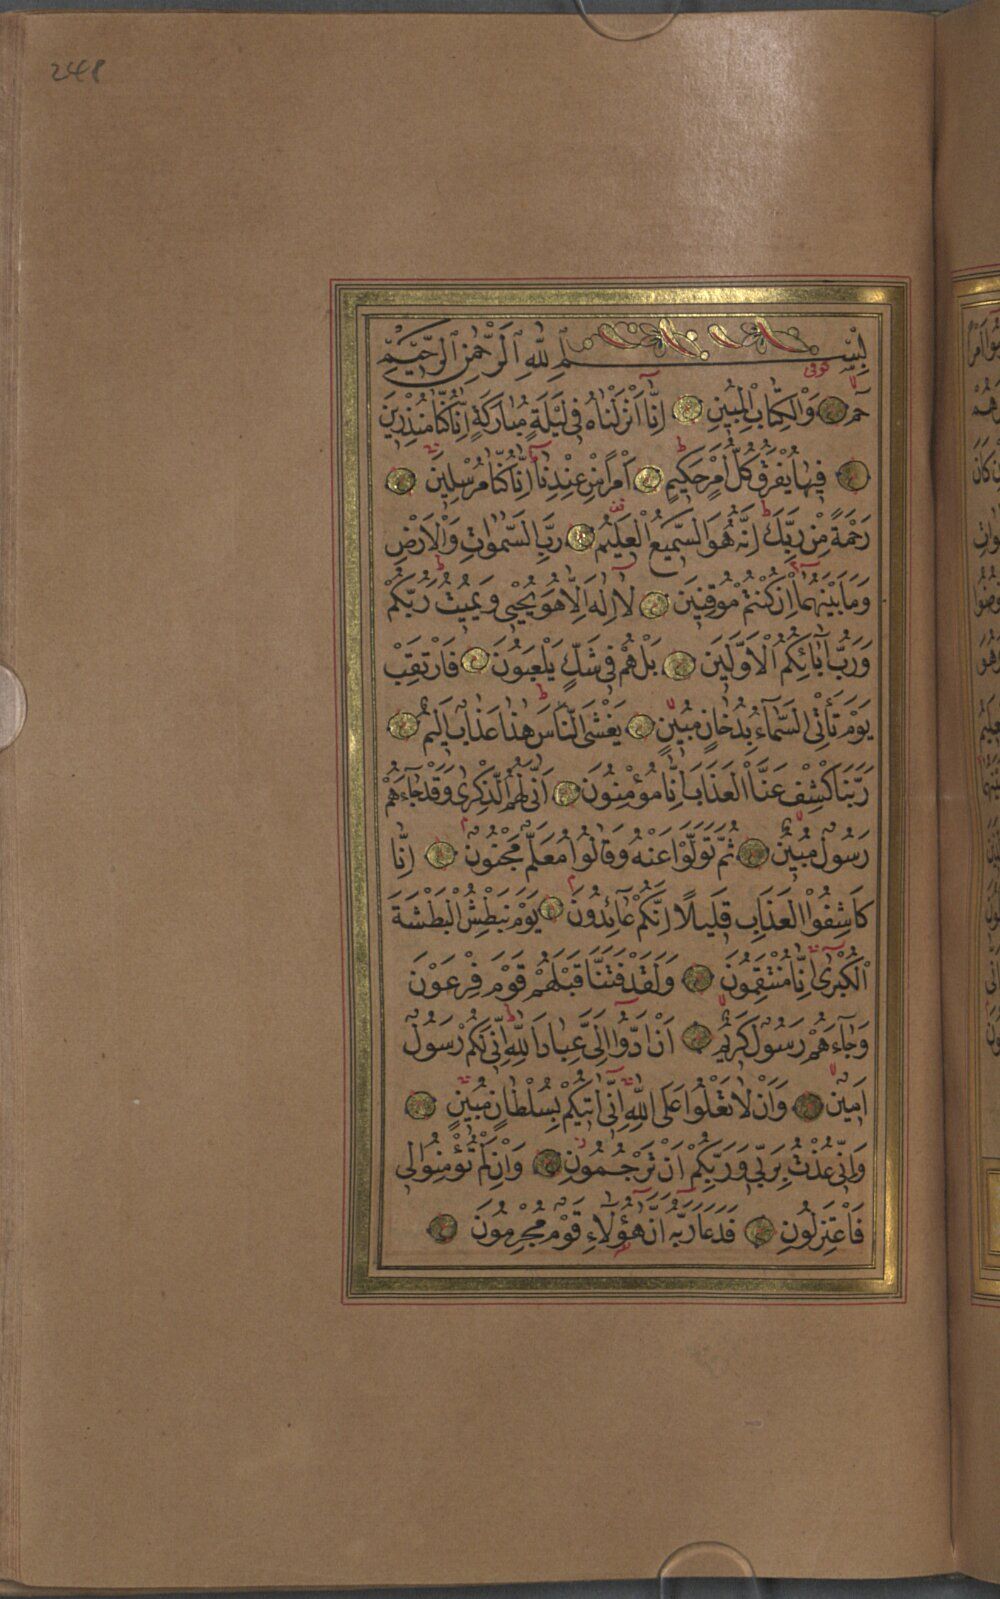 248
بِسْمِ ٱللَّهِ ٱلرَّحْمٰنِ ٱلرَّحِيمِ
كوفى
حٰمٓ وَالْكِتَابِ الْمُبِينِ اِنَّٓا اَنْزَلْنَاهُ فِى لَيْلَةٍ مُبَارَكَةٍ اِنَّا كُنَّا مُنْذِرِينَ
فِيهَا يُفْرَقُ كُلُّ اَمْرٍ حَكِيمٍ اَمْرًا مِنْ عِنْدِنَا اِنَّا كُنَّا مُرْسِلِينَ
رَحْمَةً مِنْ رَبِّكَ اِنَّهُ هُوَ السَّمِيعُ الْعَلِيمُ رَبِّ السَّمٰوَاتِ وَالْاَرْضِ
وَمَا بَيْنَهُمَا اِنْ كُنْتُمْ مُوقِنِينَ لَا اِلٰهَ اِلَّا هُوَ يُحْيِى وَيُمِيتُ رَبُّكُمْ
وَرَبُّ اٰبَائِكُمُ الْاَوَّلِينَ بَلْ هُمْ فِى شَكٍّ يَلْعَبُونَ فَارْتَقِبْ
يَوْمَ تَأْتِى السَّمَاءُ بِدُخَانٍ مُبِينٍ يَغْشَى النَّاسَ هٰذَا عَذَابٌ اَلِيمٌ
رَبَّنَا اكْشِفْ عَنَّا الْعَذَابَ اِنَّا مُؤْمِنُونَ اَنّٰى لَهُمُ الذِّكْرٰى وَقَدْ جَاءَهُمْ
رَسُولٌ مُبِينٌ ثُمَّ تَوَلَّوْا عَنْهُ وَقَالُوا مُعَلَّمٌ مَجْنُونٌ اِنَّا
كَاشِفُوا الْعَذَابِ قَلِيلًا اِنَّكُمْ عَائِدُونَ يَوْمَ نَبْطِشُ الْبَطْشَةَ
الْكُبْرٰى اِنَّا مُنْتَقِمُونَ وَلَقَدْ فَتَنَّا قَبْلَهُمْ قَوْمَ فِرْعَوْنَ
وَجَاءَهُمْ رَسُولٌ كَرِيمٌ اَنْ اَدُّوا اِلَىَّ عِبَادَ اللّٰهِ اِنِّى لَكُمْ رَسُولٌ
اَمِينٌ وَاَنْ لَا تَعْلُوا عَلَى اللّٰهِ اِنِّى اٰتِيكُمْ بِسُلْطَانٍ مُبِينٍ
وَاِنِّى عُذْتُ بِرَبِّى وَرَبِّكُمْ اَنْ تَرْجُمُونِ وَاِنْ لَمْ تُؤْمِنُوا لِى
فَاعْتَزِلُونِ فَدَعَا رَبَّهُ اَنَّ هٰؤُلَاءِ قَوْمٌ مُجْرِمُونَ